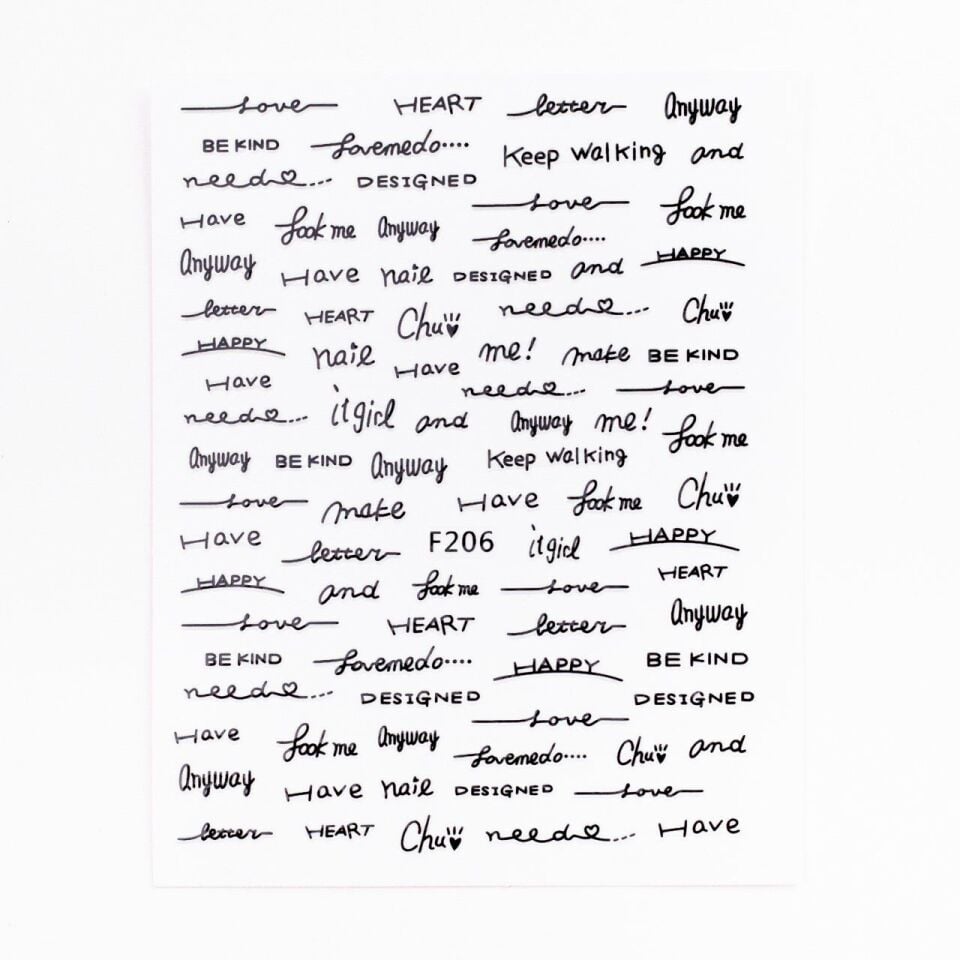 Love HEART letter Anyway
BE KIND Lovemedo.... Keep walking and
need... DESIGNED
Love Look me
Have Look me Anyway Lovemedo....
Anyway Have nail DESIGNED and HAPPY
letter HEART Chu need... Chu
HAPPY nail Have me! make BE KIND
Have need... Love
need... itgirl and Anyway me! Look me
Anyway BE KIND Anyway Keep walking
Love make Have Look me Chu
Have letter F206 itgirl HAPPY
HAPPY and Look me Love HEART
Love HEART letter Anyway
BE KIND Lovemedo.... HAPPY BE KIND
need... DESIGNED DESIGNED
Love
Have Look me Anyway Lovemedo.... Chu and
Anyway Have nail DESIGNED Love
letter HEART Chu need... Have